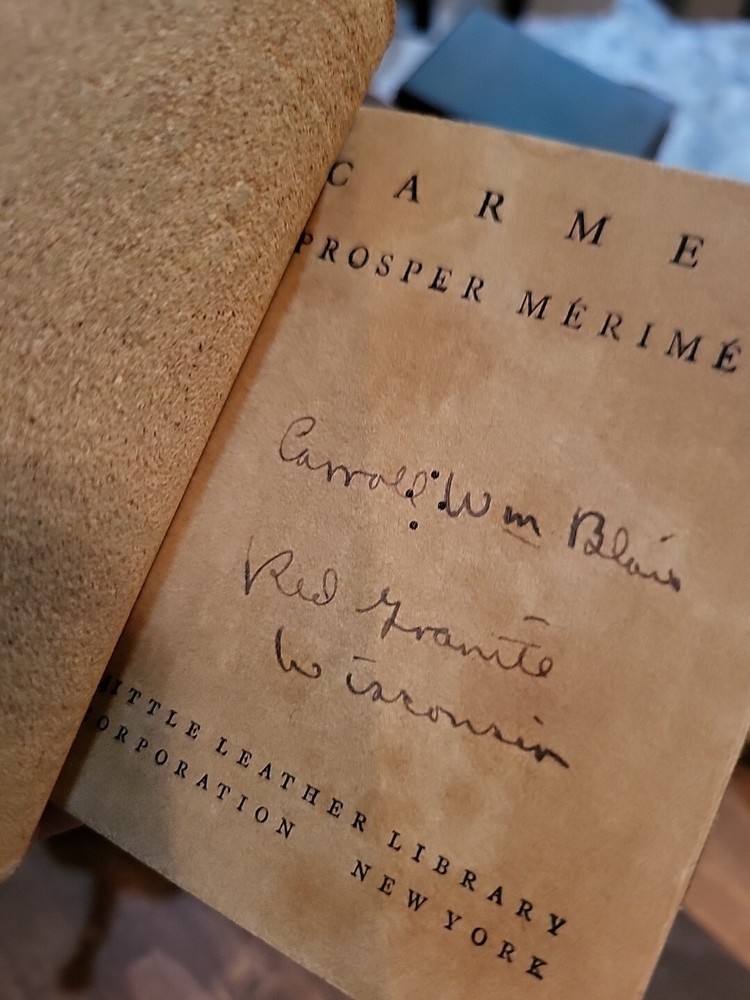 CARME
PROSPER MÉRIMÉ
Carroll Wm Blair
Red Granite
Wisconsin
LITTLE LEATHER LIBRARY
CORPORATION NEW YORK